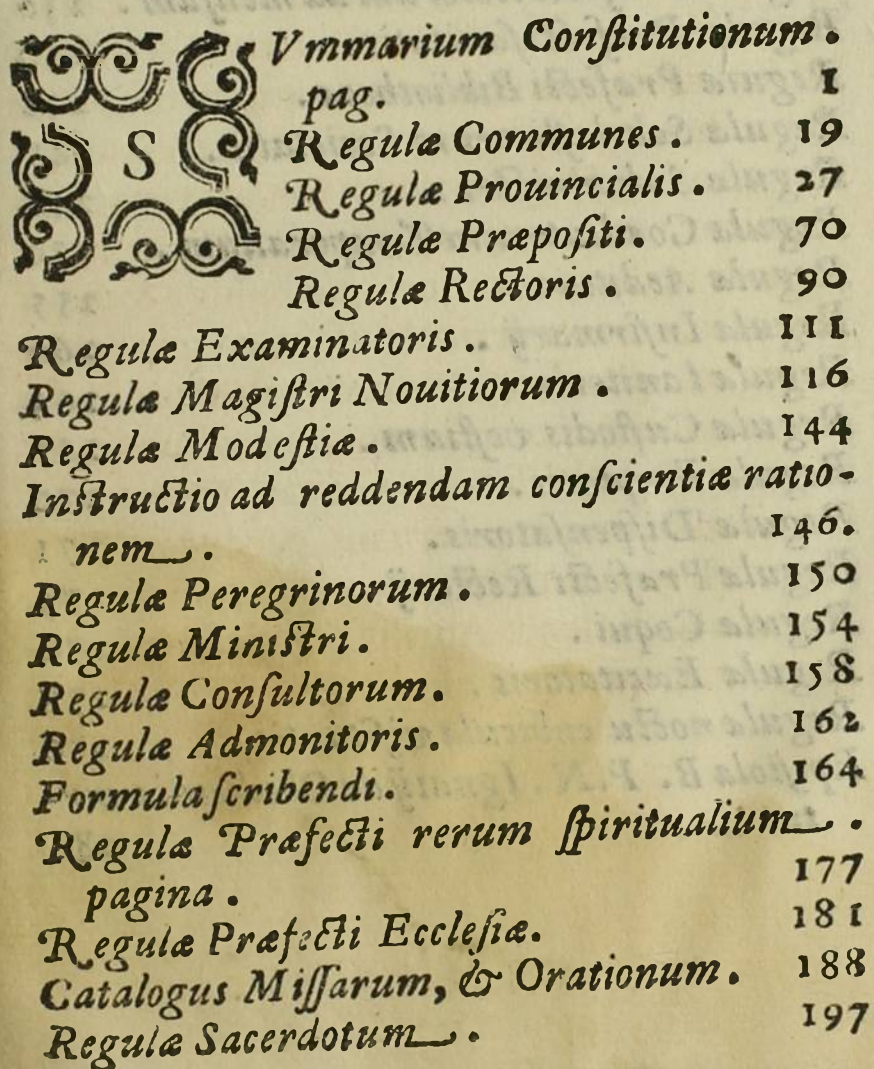 SVmmarium Conſtitutionum.
pag. 1
Regulæ Communes. 19
Regulæ Prouincialis. 27
Regulæ Præpoſiti. 70
Regulæ Rectoris. 90
Regulæ Examinatoris. 111
Regulæ Magiſtri Nouitiorum. 116
Regulæ Modeſtiæ. 144
Inſtructio ad reddendam conſcientiæ ratio-
nem. 146.
Regulæ Peregrinorum. 150
Regulæ Miniſtri. 154
Regulæ Conſultorum. 158
Regulæ Admonitoris. 162
Formula ſcribendi. 164
Regulæ Præfecti rerum ſpiritualium.
pagina. 177
Regulæ Præfecti Eccleſiæ. 181
Catalogus Miſſarum, & Orationum. 188
Regulæ Sacerdotum. 197